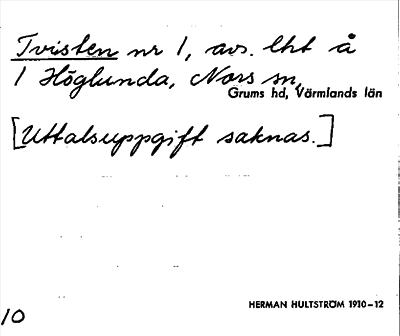 Tvisten nr 1, avs. lht å
1 Höglunda, Nors sn,
Grums hd, Värmlands län
[Uttalsuppgift saknas.]
HERMAN HULTSTRÖM 1910-12
10